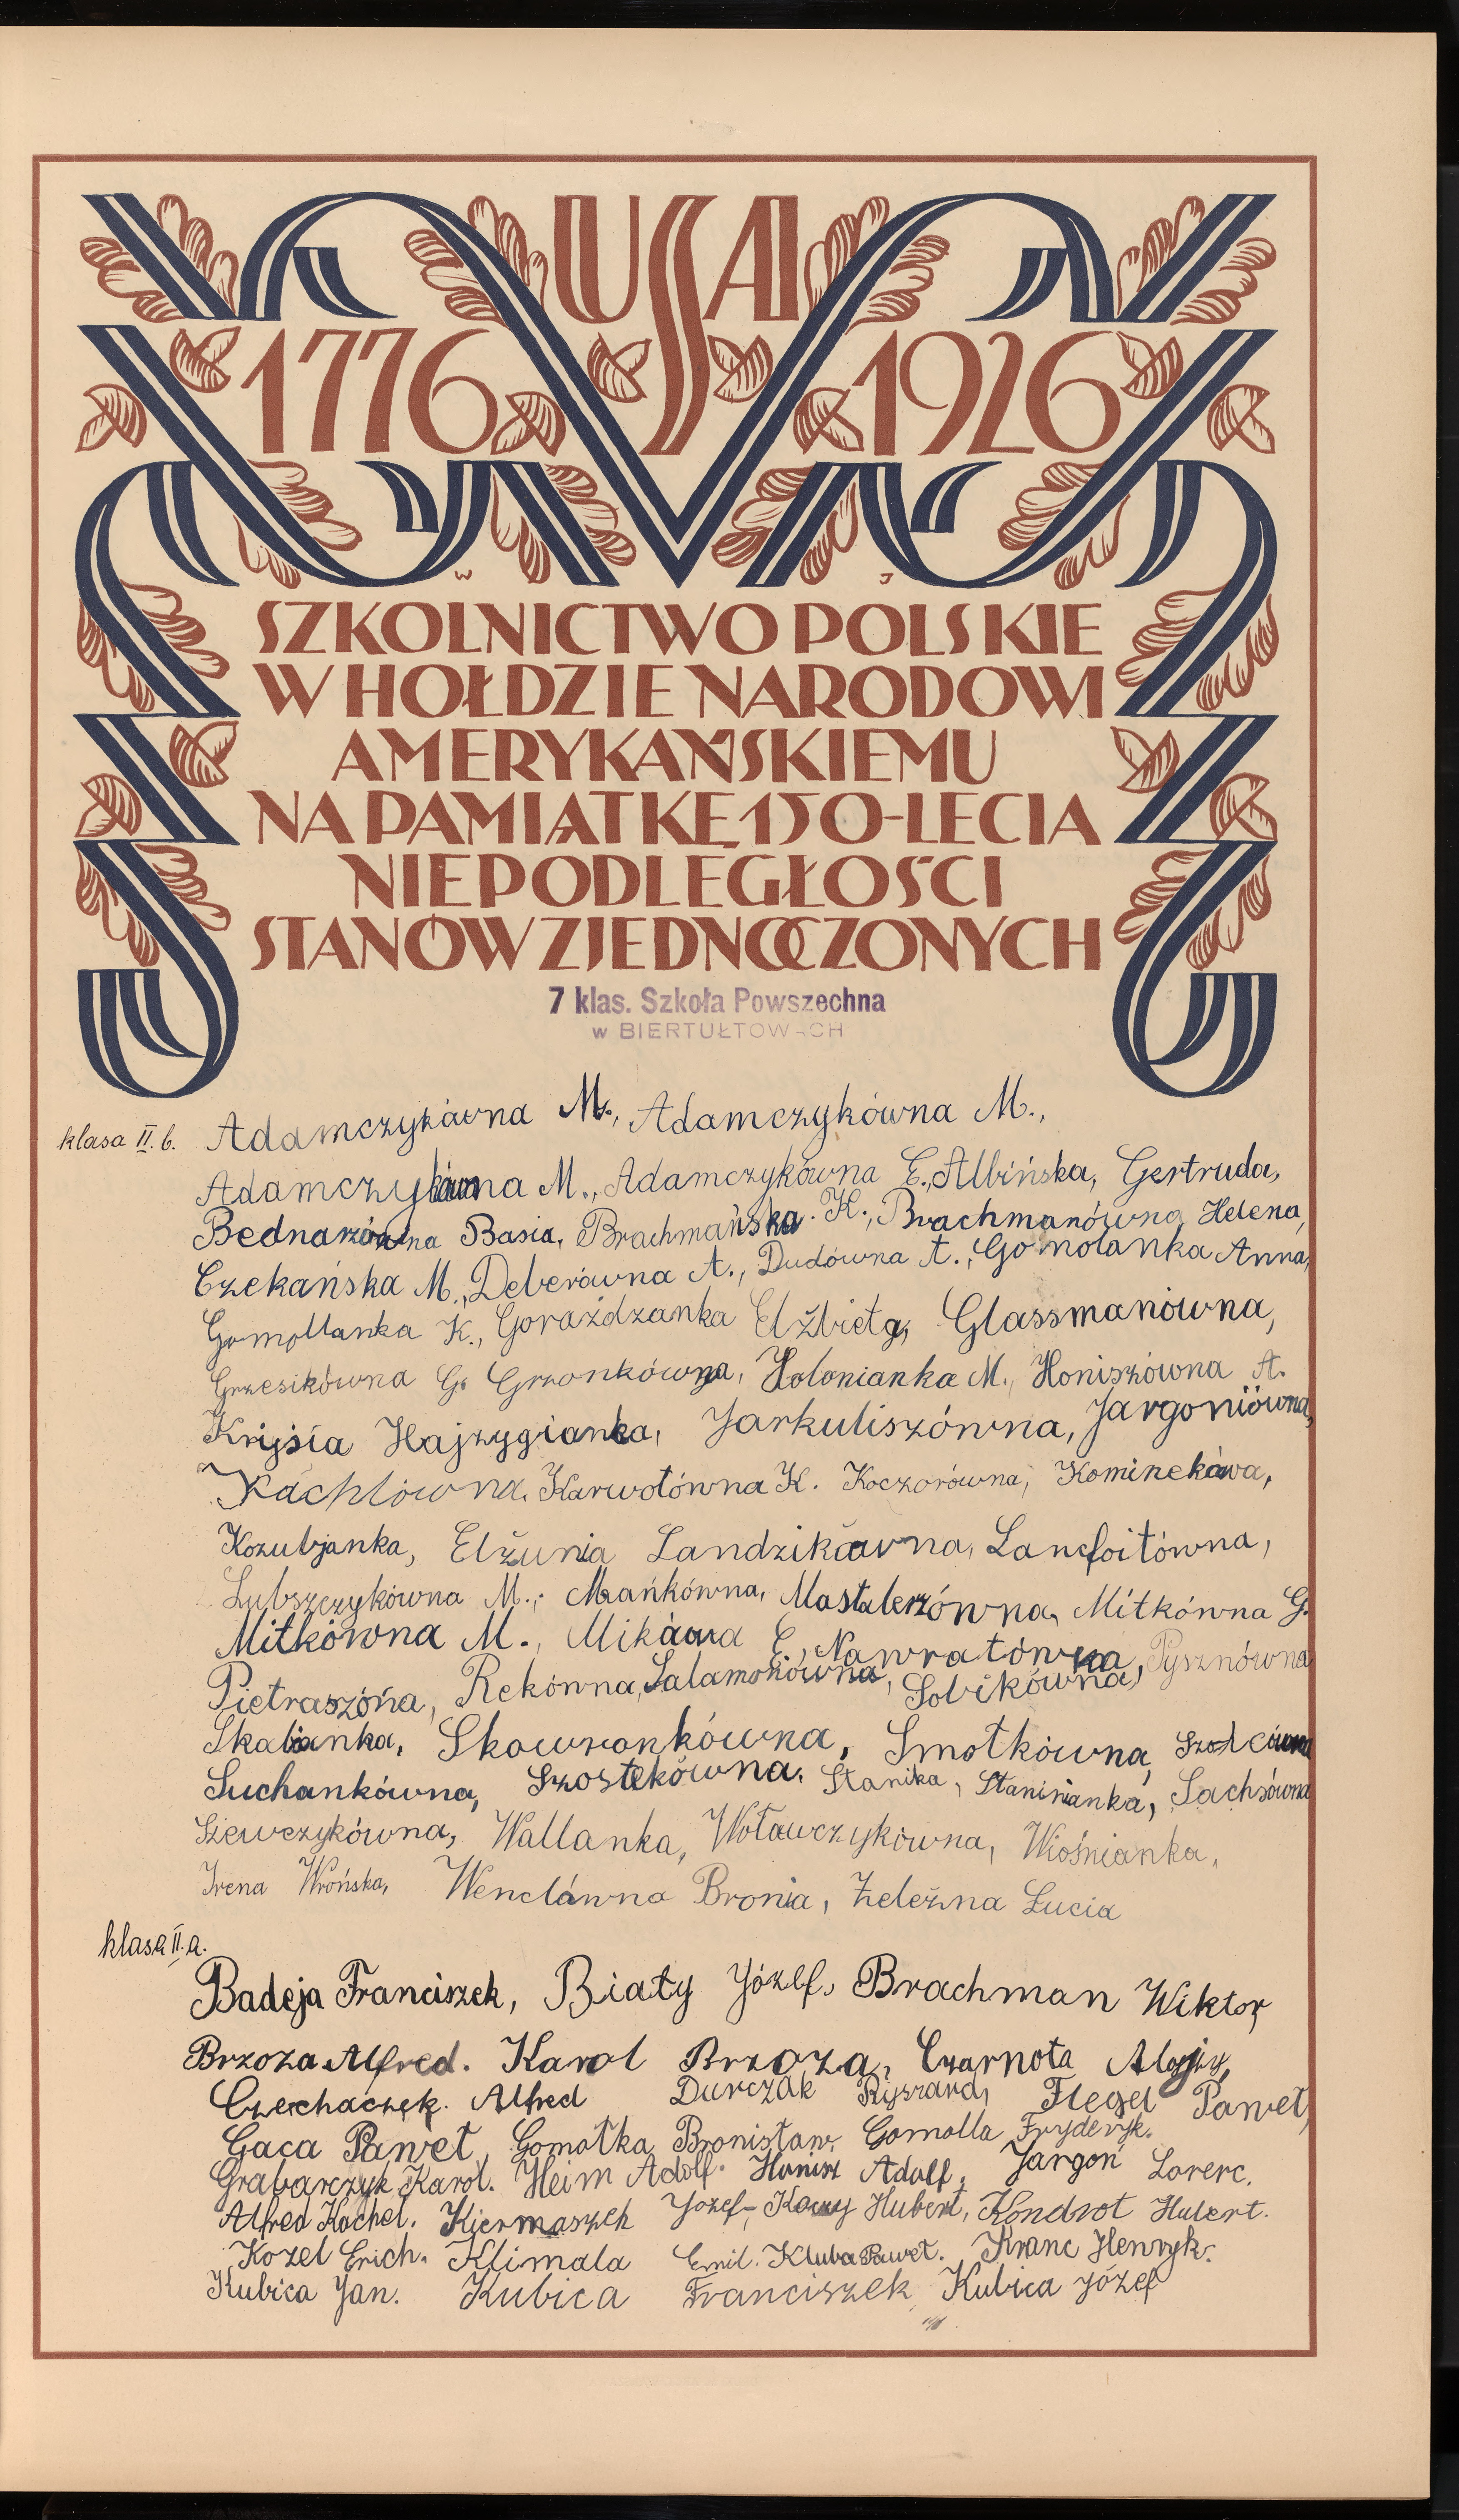 USA
1776 1926
W J
SZKOLNICTWO POLSKIE
W HOŁDZIE NARODOWI
AMERYKAŃSKIEMU
NA PAMIĄTKĘ 150-LECIA
NIEPODLEGŁOŚCI
STANÓW ZJEDNOCZONYCH
7 klas. Szkoła Powszechna
w BIERTUŁTOWACH
klasa II. b. Adamczykówna M., Adamczykówna M.,
Adamczykówna M., Adamczykówna E., Albińska, Gertruda,
Bednarzówna Basia, Brachmańska K., Brachmanówna Helena,
Czekańska M., Deberówna A., Dudówna A., Gomolanka Anna,
Gomollanka K., Gorażdzanka Elżbieta, Glassmanówna,
Grzesikówna G. Gronkówna, Holonianka M., Honiszówna A.
Kryjsia Hajzygianka, Jarkuliszówna, Jargoniówna,
Kachlówna, Karwotówna K. Koczorówna,
Kozubjanka, Elżunia Landzikówna, Lancfoitówna,
Lubszczykówna M., Mańkówna, Mastalerzówna, Mitkówna G.
Mitkówna M., E., Nawratówna, Pysznówna
Rekówna, Salamonówna, Sobikówna,
Skabianka, Skowronkówna, Smotkówna,
Suchankówna, Szostekówna, Stanika, Staninianka, Sachsówna
Szewczykówna, Wallanka, Woławczykówna, Wiośnianka,
Irena Wrońska, Wenclówna Bronia, Żeleźna Łucia
klasa II. a.
Badeja Franciszek, Biały Józef, Brachman Wiktor
Brzoza Alfred. Karol Brzoza, Czarnota Alojzy,
Czechaczek. Alfred Durczak Ryszard, Flegel Paweł,
Gaca Paweł, Gomołka Bronisław, Gomolla Fryderyk.
Grabarczyk Karol. Heim Adolf. Honisz Adolf, Jargoń Lorenc.
Alfred Kachel. Kiermaszek Józef, Hubert, Kondrot Hubert.
Kozel Erich. Klimala Emil. Kluba Paweł. Kranc Henryk.
Kubica Jan. Kubica Franciszek, Kubica Józef